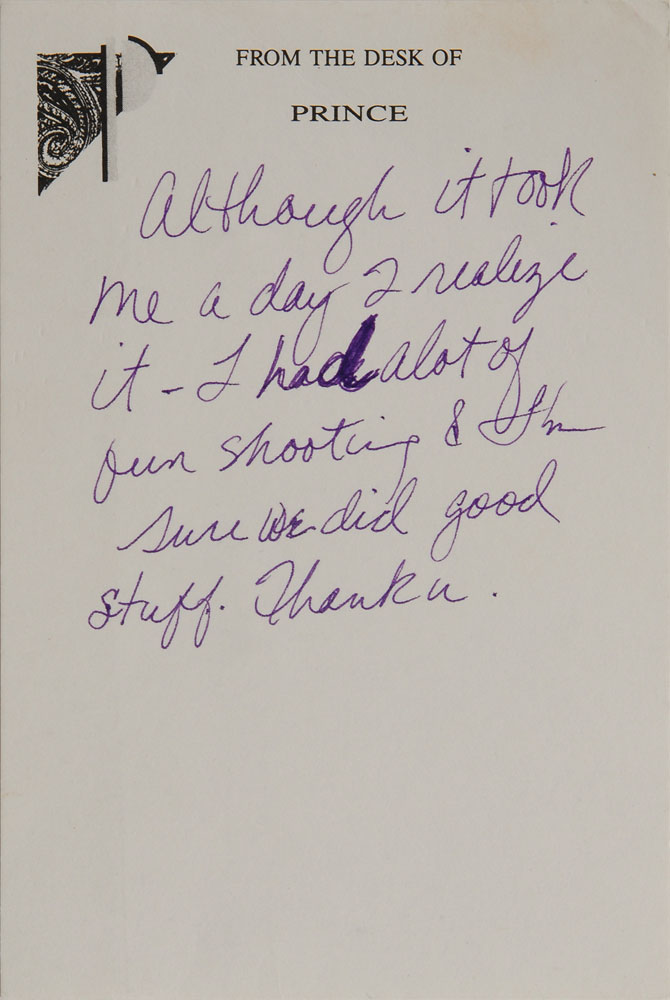 FROM THE DESK OF
PRINCE
Although it took
me a day 2 realize
it - I had alot of
fun shooting & I'm
sure we did good
stuff. Thank u.